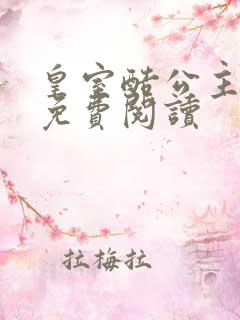 皇室酷公主
免費閱讀
拉梅拉